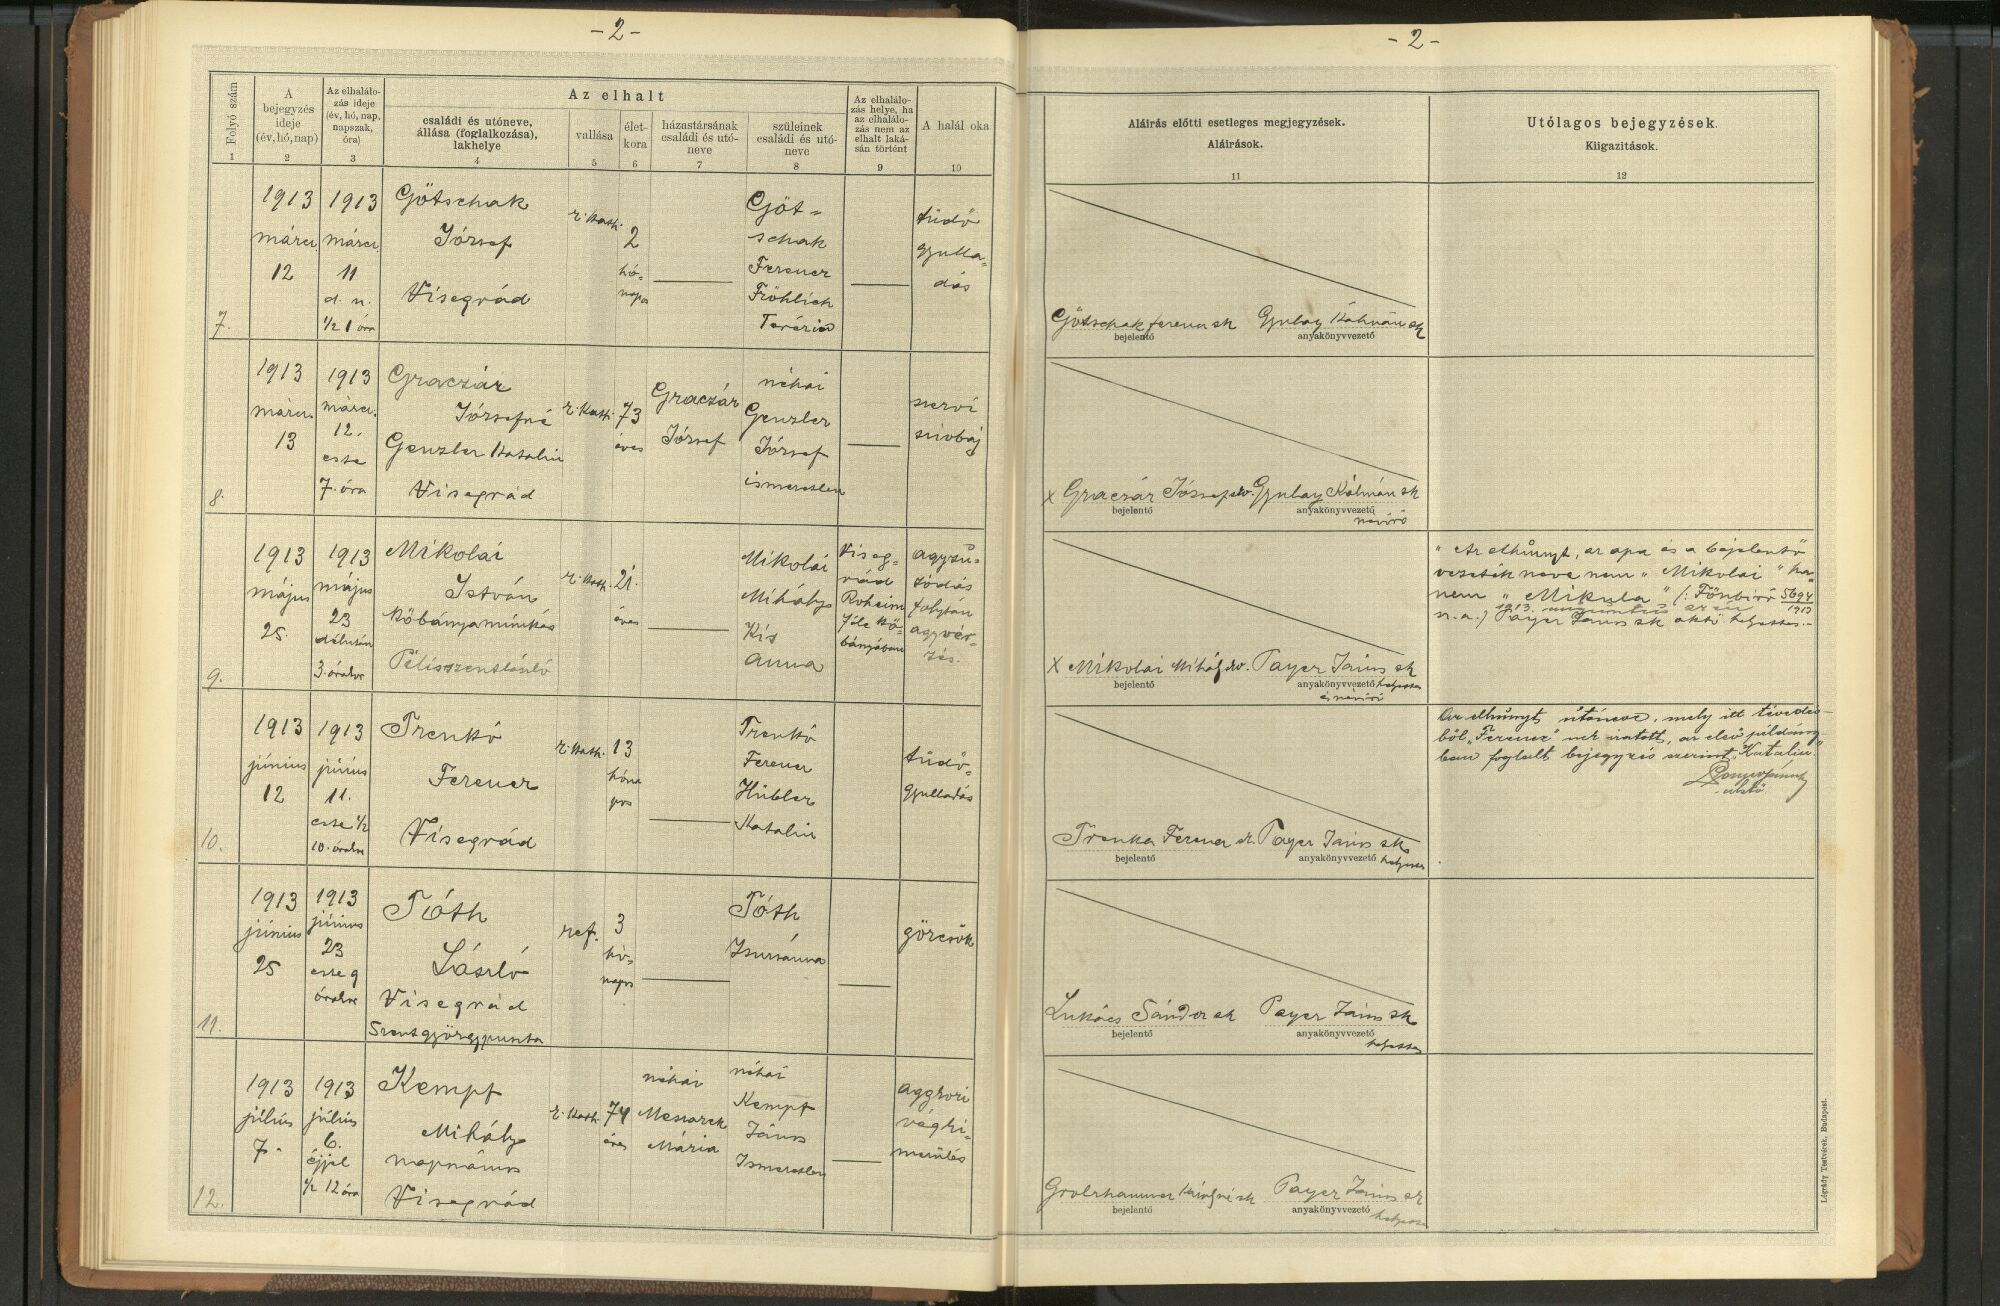 - 2 -
Folyó szám
1
A
bejegyzés
ideje
(év, hó, nap)
2
Az elhalálo-
zás ideje
(év, hó, nap,
napszak,
óra)
3
Az elhalt
családi és utóneve,
állása (foglalkozása),
lakhelye
4
vallása
5
élet-
kora
6
házastársának
családi és utó-
neve
7
szüleinek
családi és utó-
neve
8
Az elhalálo-
zás helye, ha
az elhalálo-
zás nem az
elhalt laká-
sán történt
9
A halál oka
10
7.
1913
márcz.
12
1913
márcz.
11
d. n.
1/2 1 óra
Götschak
József
Visegrád
r. kath.
2
hó-
napos
Göt-
schak
Ferencz
Fröhlich
Terézia
tüdő
gyulla-
dás
8.
1913
márcz.
13
1913
márcz.
12.
este
7. óra
Graczár
Józsefné
Genzler Katalin
Visegrád
r. kath.
73
éves
Graczár
József
néhai
Genzler
József
ismeretlen
szervi
szívbaj
9.
1913
május
25.
1913
május
23
délután
3. órakor
Mikolai
István
kőbányamunkás
Pilisszentlászló
r. kath.
21.
éves
Mikolai
Mihály
Kis
Anna
Viseg-
rád
Roheim
féle kő-
bányában
agyzú-
zódás
folytán
agyvér-
zés.
10.
1913
június
12
1913
június
11.
este 1/2
10. órakor
Trenkó
Ferencz
Visegrád
r. kath.
13
hóna
pos
Trenkó
Ferencz
Hübler
Katalin
tüdő-
gyulladás
11.
1913
június
25
1913
június
23
este 9
órakor
Tóth
László
Visegrád
Szentgyörgypuszta
ref.
3
hó-
napos
Tóth
Zsuzsánna
görcsök
12.
1913
július
7.
1913
július
6.
éjjel
1/2 12 óra
Kempf
Mihály
napszámos
Visegrád
r. kath.
74
éves
néhai
Mária
néhai
Kempf
János
Ismeretlen
aggkori
végki-
merülés
- 2 -
Aláírás előtti esetleges megjegyzések.
Aláírások.
11
Utólagos bejegyzések.
Kiigazítások.
12
Götschak Ferencz sk Gyulay Kálmán sk
bejelentő anyakönyvvezető
x Graczár József Gyulay Kálmán sk
bejelentő anyakönyvvezető
névíró
„Az elhúnyt, az apa és a bejelentő
vezeték neve nem „Mikolai" ha-
nem „Mikula" /: Főbíró 5694/1913
1913. augusztus
n. a. / Payer János sk akv. helyettes.
x Mikolai Mihály Payer János sk
bejelentő anyakönyvvezető helyettes
és névíró
Az elhúnyt útóneve, mely itt tévedés-
ből „Ferencz" nek iratott, az első példány-
ban foglalt bejegyzés szerint „Katalin."
Trenka Ferencz sk Payer János sk
bejelentő anyakönyvvezető helyettes
Lukács Sándor sk Payer János sk
bejelentő anyakönyvvezető
helyettes
Payer János sk
bejelentő anyakönyvvezető
helyettes
Légrády Testvérek, Budapest.